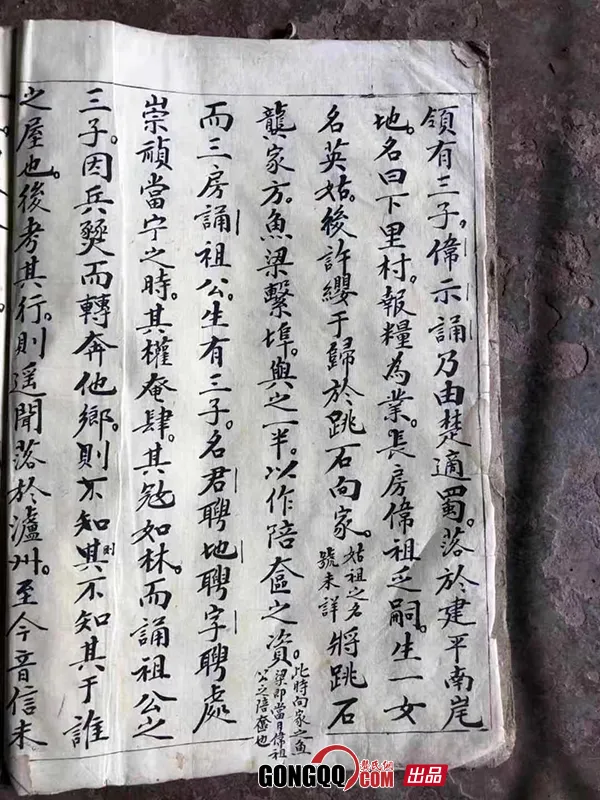 領有三子。偉示誦乃由楚適蜀。落於建平南岸
地。名曰下里村。報糧為業。長房偉祖乏嗣。生一女
名英姑。後許纓于歸於跳石向家。姑祖之名號未詳將跳石
龔家方。魚梁繫埠。與之一半。以作陪奩之資。此時向家之魚梁即當日偉祖公之陪奩也
而三房誦祖公。生有三子。名君聘地聘字聘處
崇禎當宁之時。其權奄肆。其冦如林。而誦祖公之
三子。因兵燹而轉奔他鄉。則不知其則不知其于誰
之屋也。後考其行。則遥聞落於瀘州。至今音信未
GONGQQ.COM 龔氏網 出品